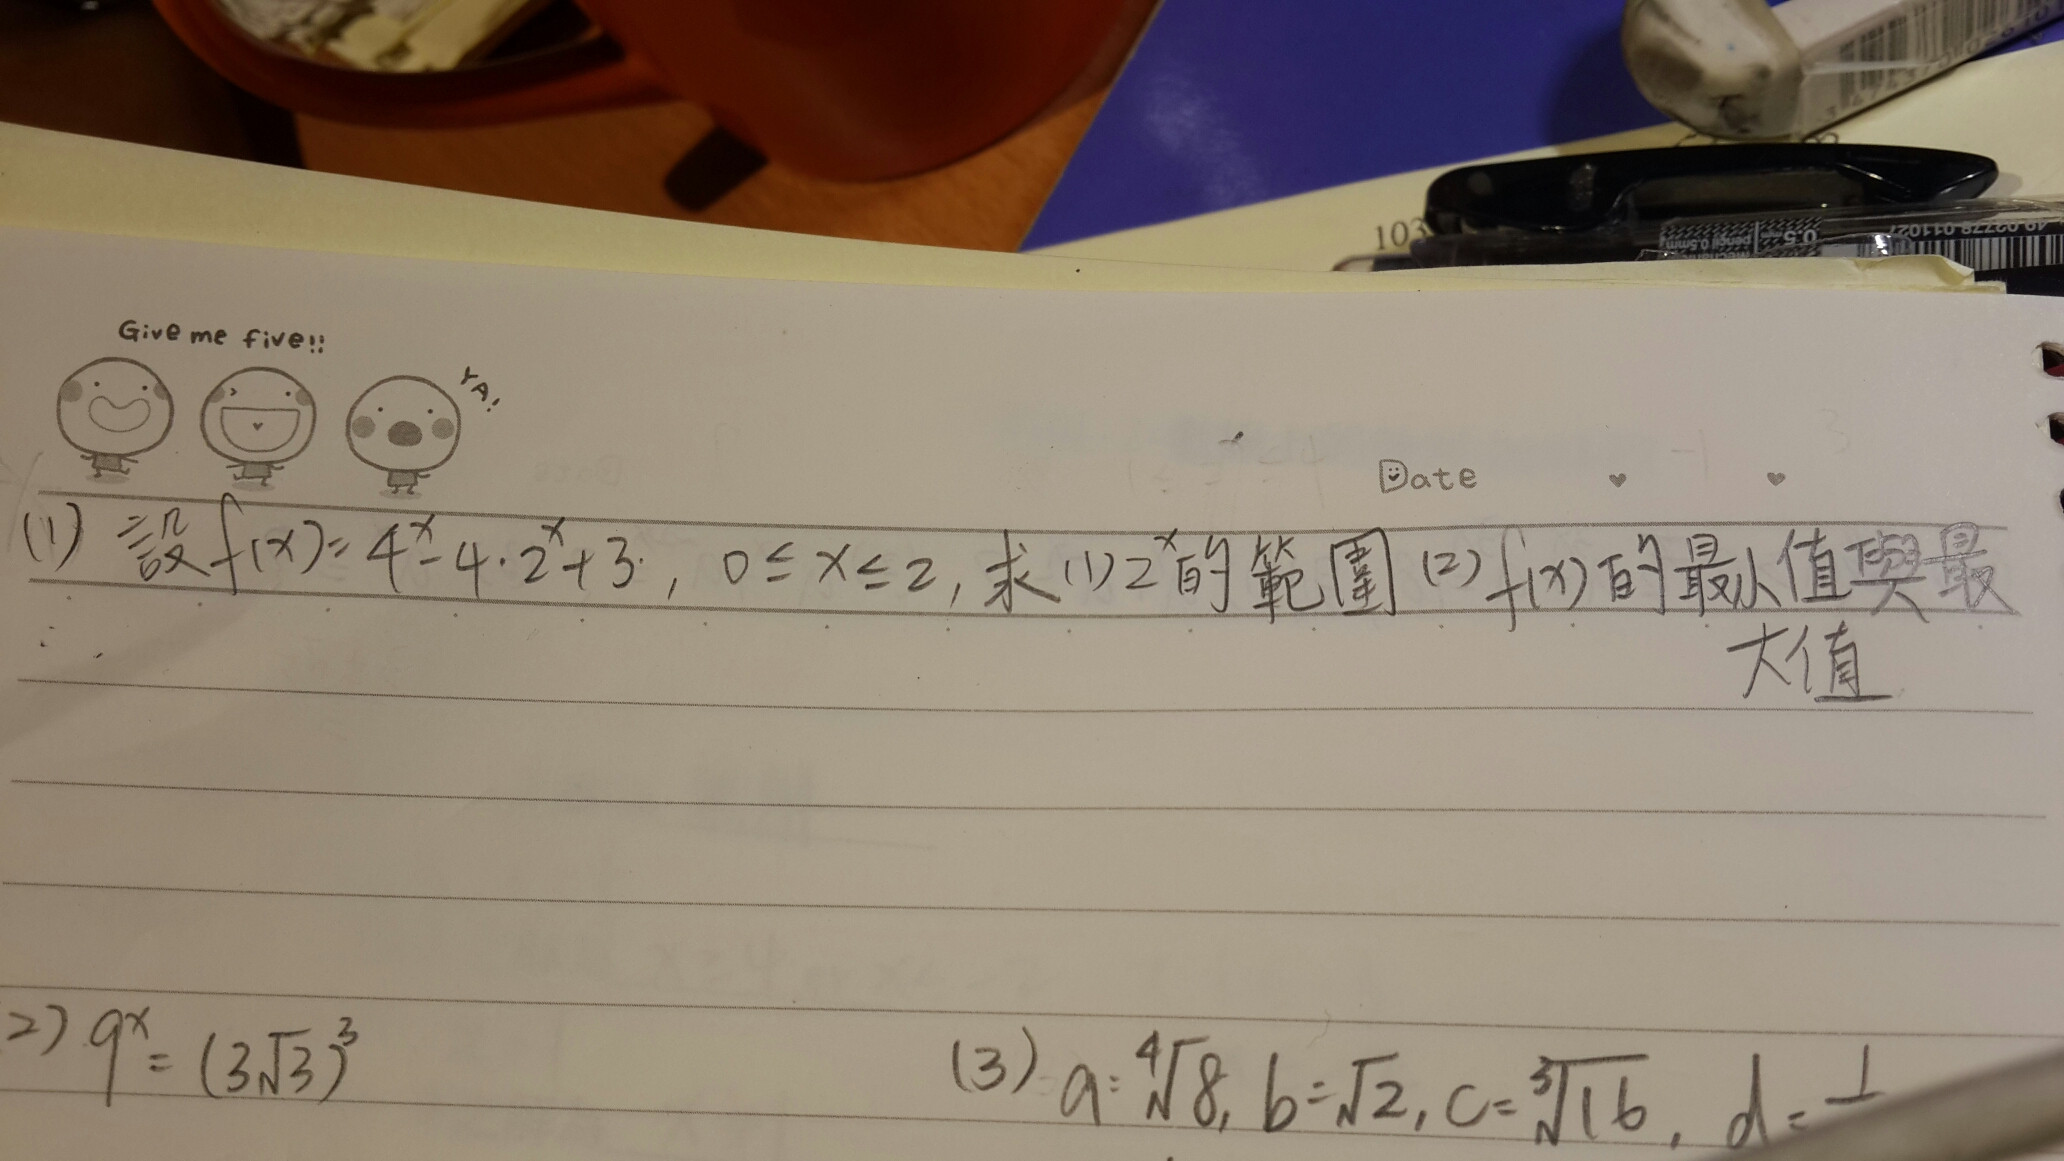 103
0.5
pencil 0.5mm
Give me five!!
YA!
Date
(1) 設f(x)=4ˣ-4·2ˣ+3, 0≤x≤2, 求(1)2ˣ的範圍(2)f(x)的最小值與最
大值
2) 9ˣ=(3√3)³
(3) a=⁴√8, b=√2, c=³√16, d=1